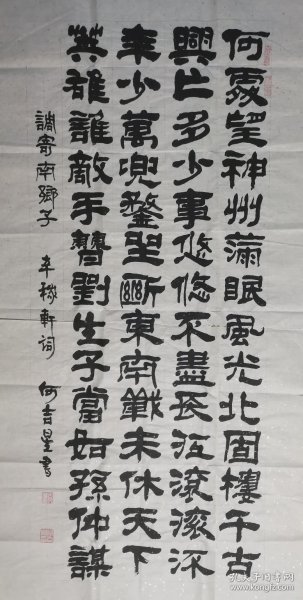 何處望神州滿眼風光北固樓千古
興亡多少事悠悠不盡長江滾滾流
年少萬兜鍪坐斷東南戰未休天下
英雄誰敵手曹劉生子當如孫仲謀
調寄南鄉子 辛稼軒詞 何吉星書
孔夫子旧书网